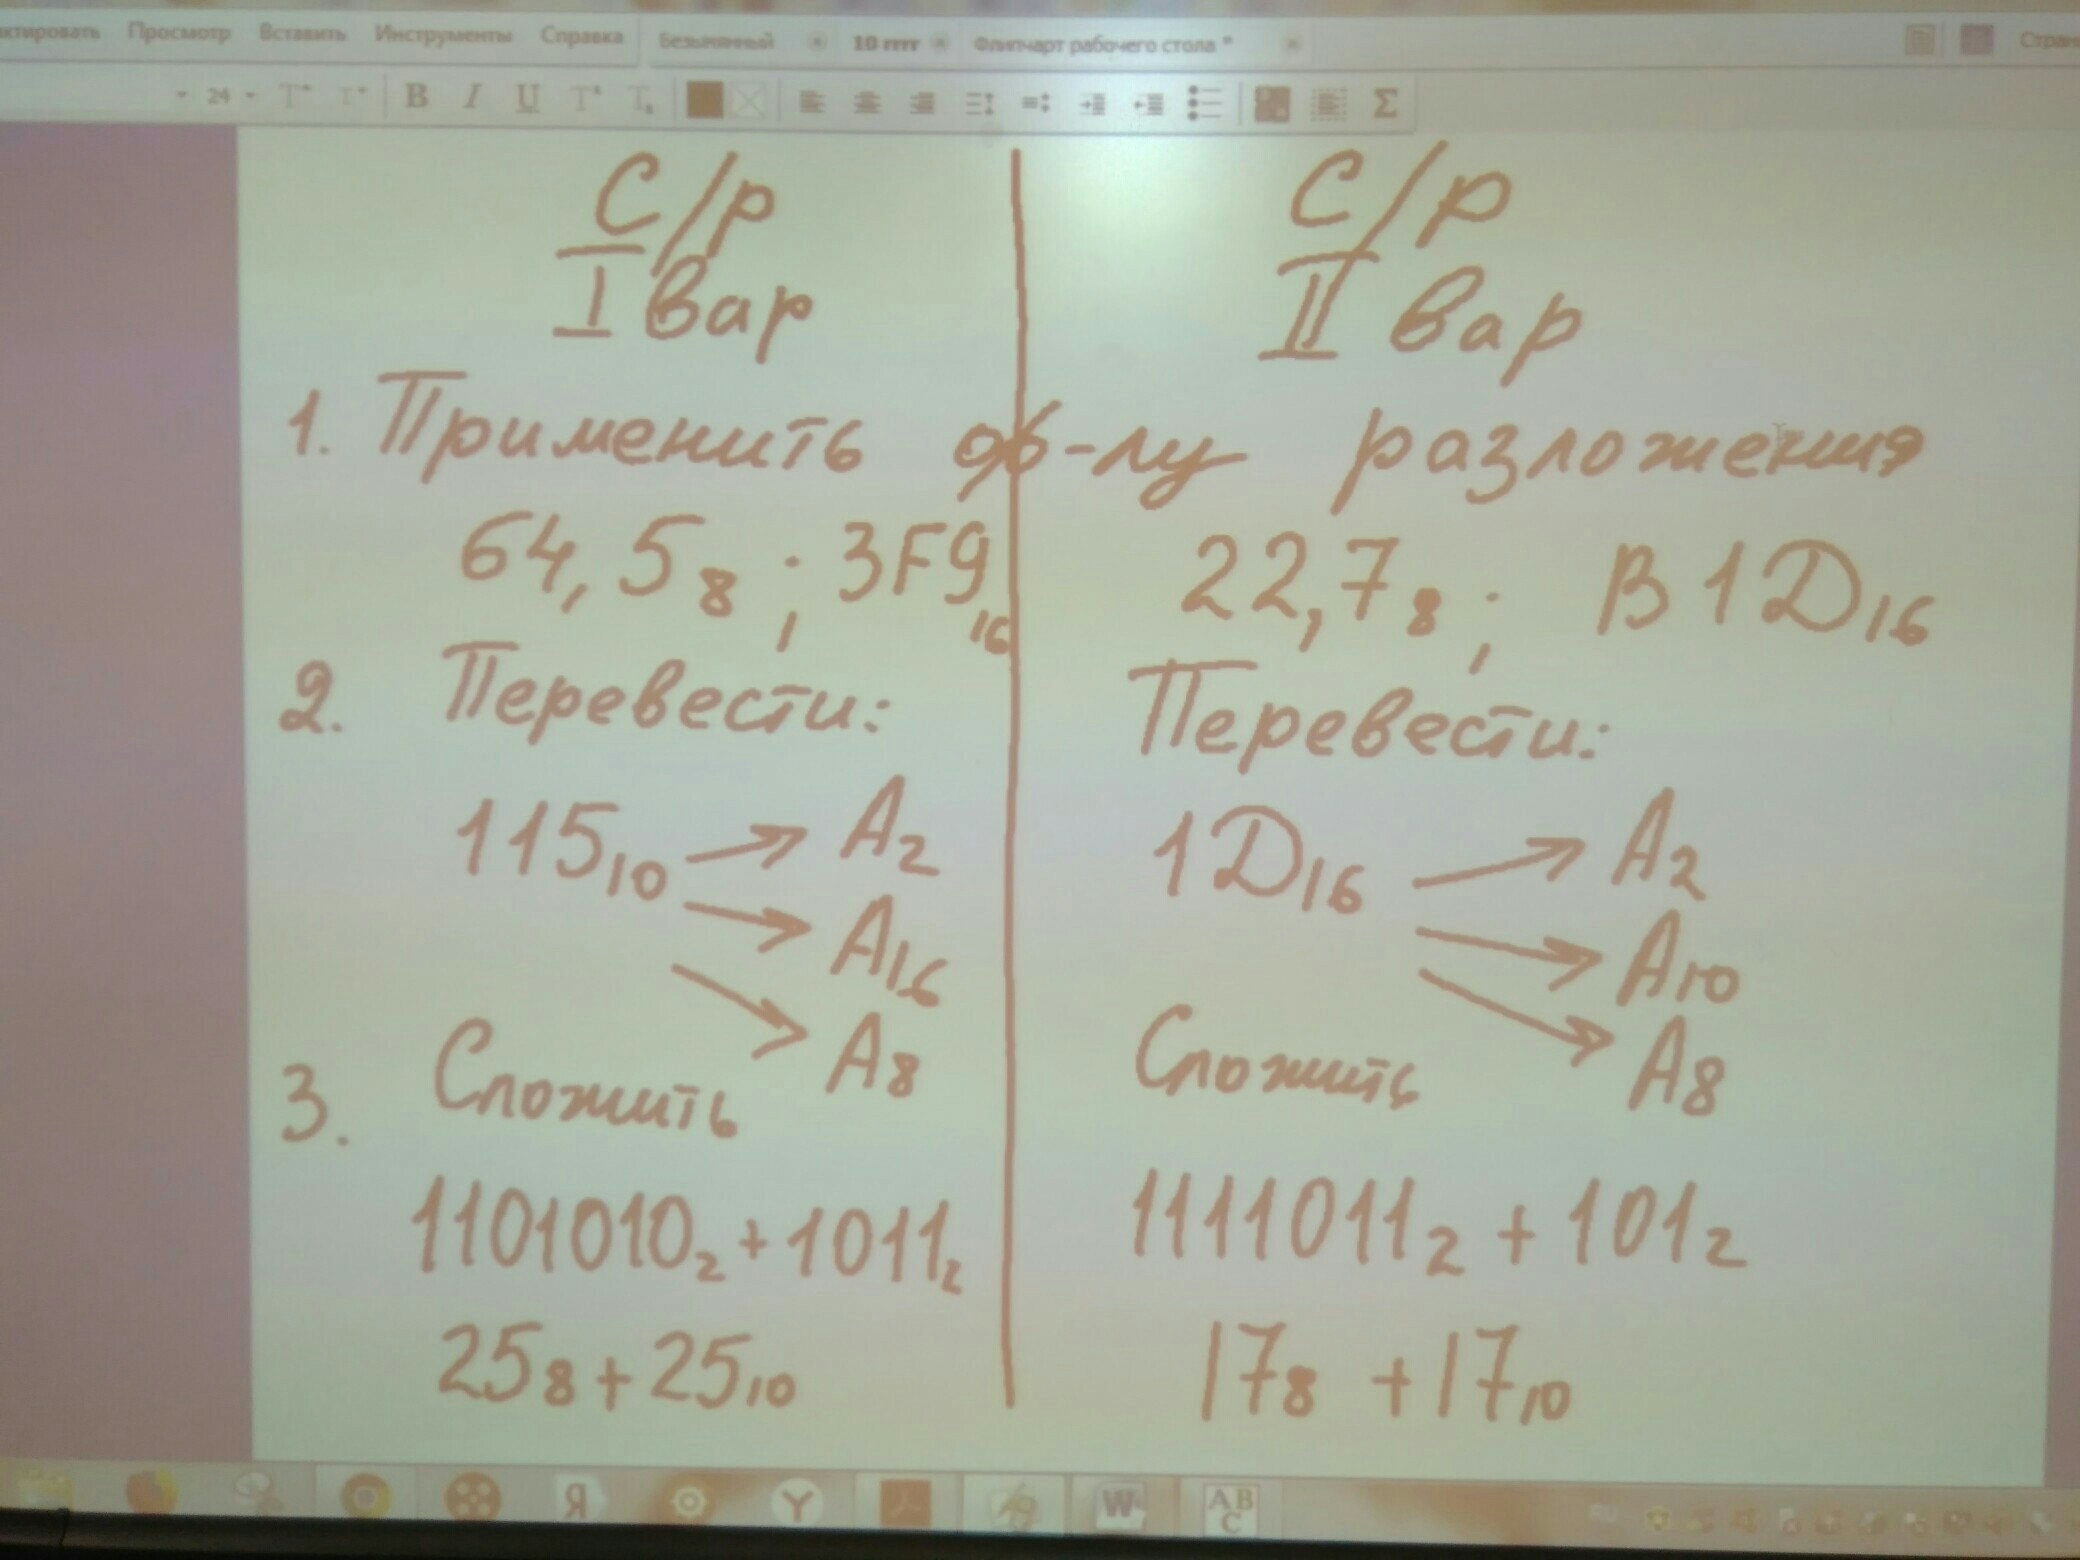 Просмотр Вставить Инструменты Справка Безымянный 10 гггг Флипчарт рабочего стола *
24 B I U Σ
С/р
I вар
1. Применить ф-лу разложения
64,5₈ ; 3F9₁₆
2. Перевести:
115₁₀ → A₂
→ A₁₆
→ A₈
3. Сложить
1101010₂ + 1011₂
25₈ + 25₁₀
С/р
II вар
22,7₈ ; B1D₁₆
Перевести:
1D₁₆ → A₂
→ A₁₀
→ A₈
Сложить
1111011₂ + 101₂
17₈ + 17₁₀
Я Y W ABC
RU